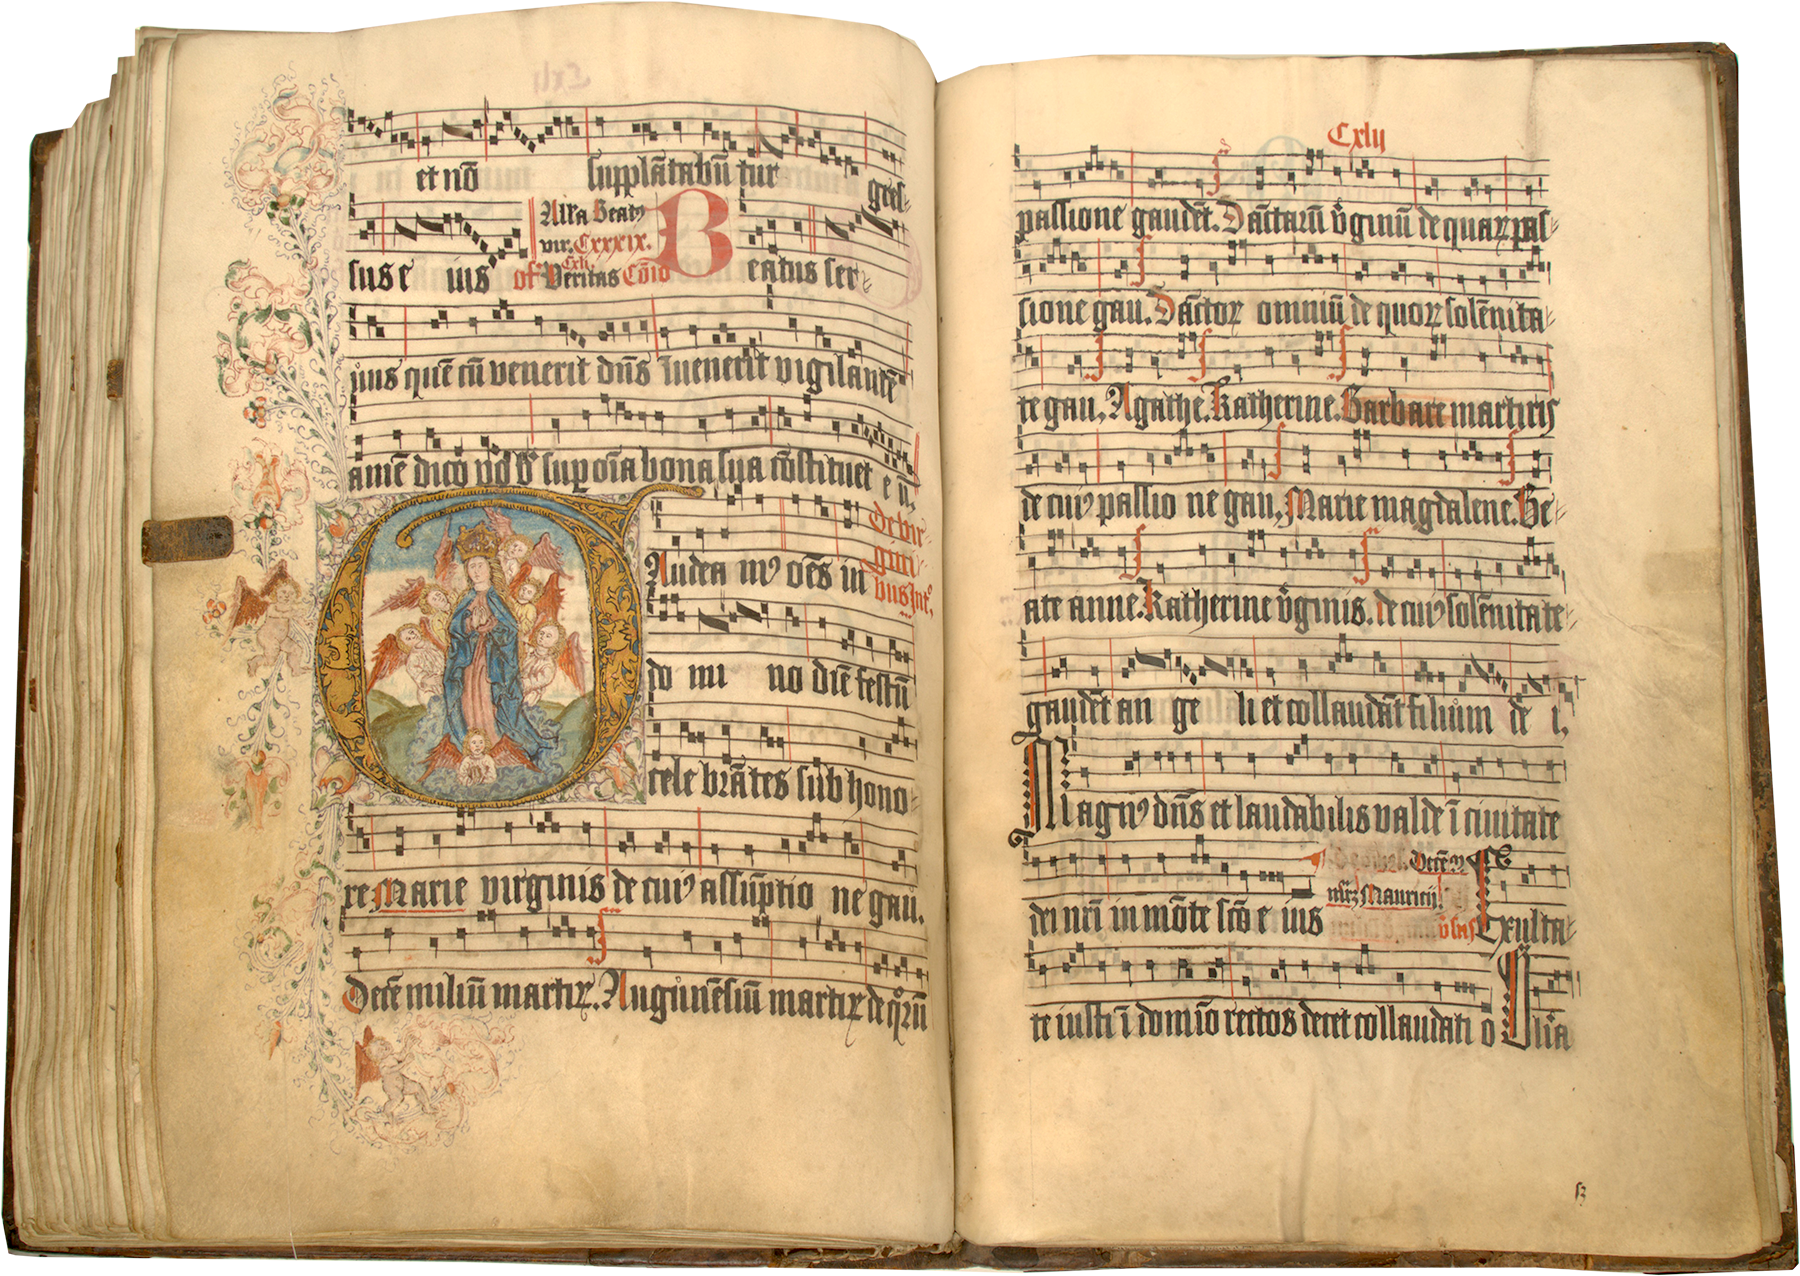 et nō supplātabūtur gres-
sus e ius Alla Beatꝰ
vir. Cxxxix.
of Veritas Cxli. Cōio Beatus ser-
uus quē cū venerit dn̄s Inuenerit vigilantē
amē dico vob̓ sup oīa bona sua cōstituet eū,
De vir-
gini-
bus Int°.
Gaudeamꝰ oēs in
do mi no diē festū
cele brātes sub hono-
re Marie virginis de cuiꝰ assūptio ne gau.
Decē miliū martiꝝ. Auguneſiū martiꝝ de qͦrū
Cxlij
passione gaudēt. Sāctarū v̓ginū de quaꝝ pas-
sione gau. Sāctoꝝ omniū de quoꝝ solēnita-
te gau, Agathe. Katherine. Barbare martiris
de cuiꝰ passio ne gau, Marie magdalene. Be-
ate anne. Katherine v̓ginis. de cuiꝰ solēnitate
gaudēt an ge li et collaudāt filium de i,
Magnꝰ dn̄s et laudabilis valde ī ciuitate
dei nr̄i in mōte scō e ius Decē m
mr̄ꝝ Mauricij v̓sus Exulta-
te iusti ī domīo rectos decet collaudati o Glīa